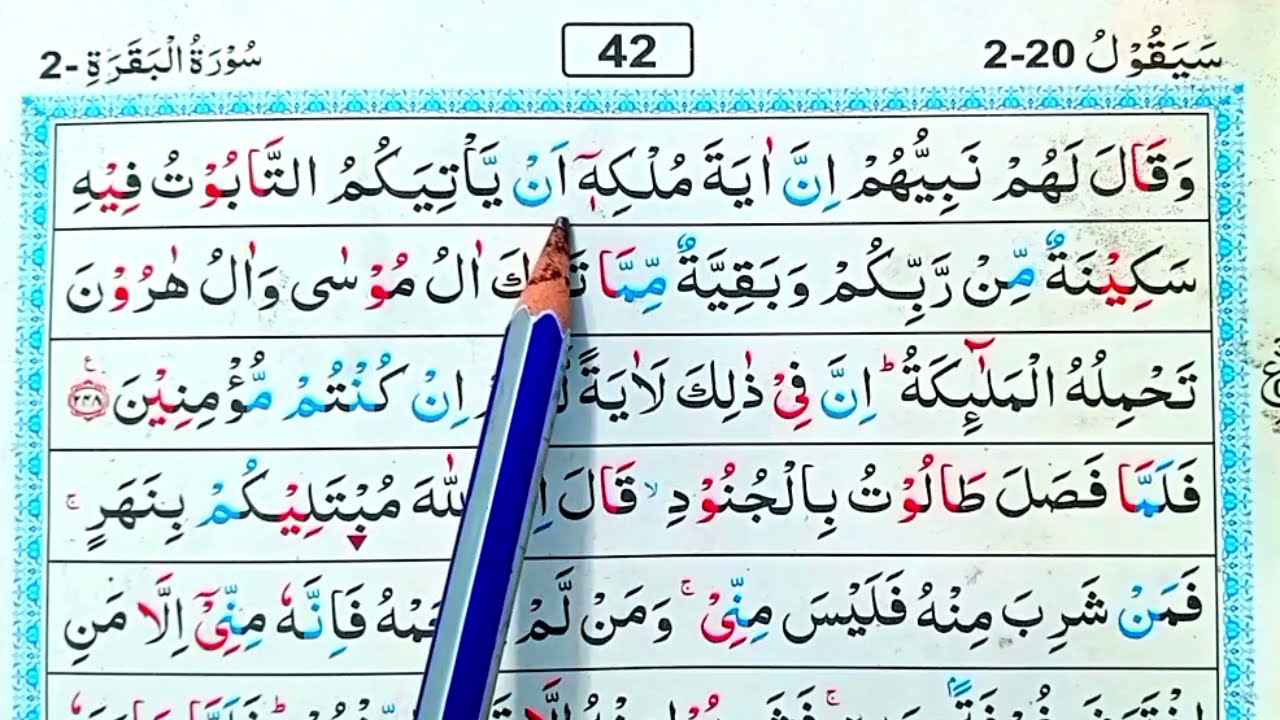 سَيَقُوْلُ 2-20
42
سُوْرَةُ الْبَقَرَةِ -2
وَقَالَ لَهُمْ نَبِيُّهُمْ اِنَّ اٰيَةَ مُلْكِهٖٓ اَنْ يَّاْتِيَكُمُ التَّابُوْتُ فِيْهِ
سَكِيْنَةٌ مِّنْ رَّبِّكُمْ وَبَقِيَّةٌ مِّمَّا اٰلُ مُوْسٰى وَاٰلُ هٰرُوْنَ
تَحْمِلُهُ الْمَلٰٓئِكَةُ ؕ اِنَّ فِيْ ذٰلِكَ لَاٰيَةً اِنْ كُنْتُمْ مُّؤْمِنِيْنَ ع ۲۴۸
فَلَمَّا فَصَلَ طَالُوْتُ بِالْجُنُوْدِ ۙ قَالَ مُبْتَلِيْكُمْ بِنَهَرٍ ۚ
فَمَنْ شَرِبَ مِنْهُ فَلَيْسَ مِنِّيْ ۚ وَمَنْ لَّمْ فَاِنَّهٗ مِنِّيْٓ اِلَّا مَنِ